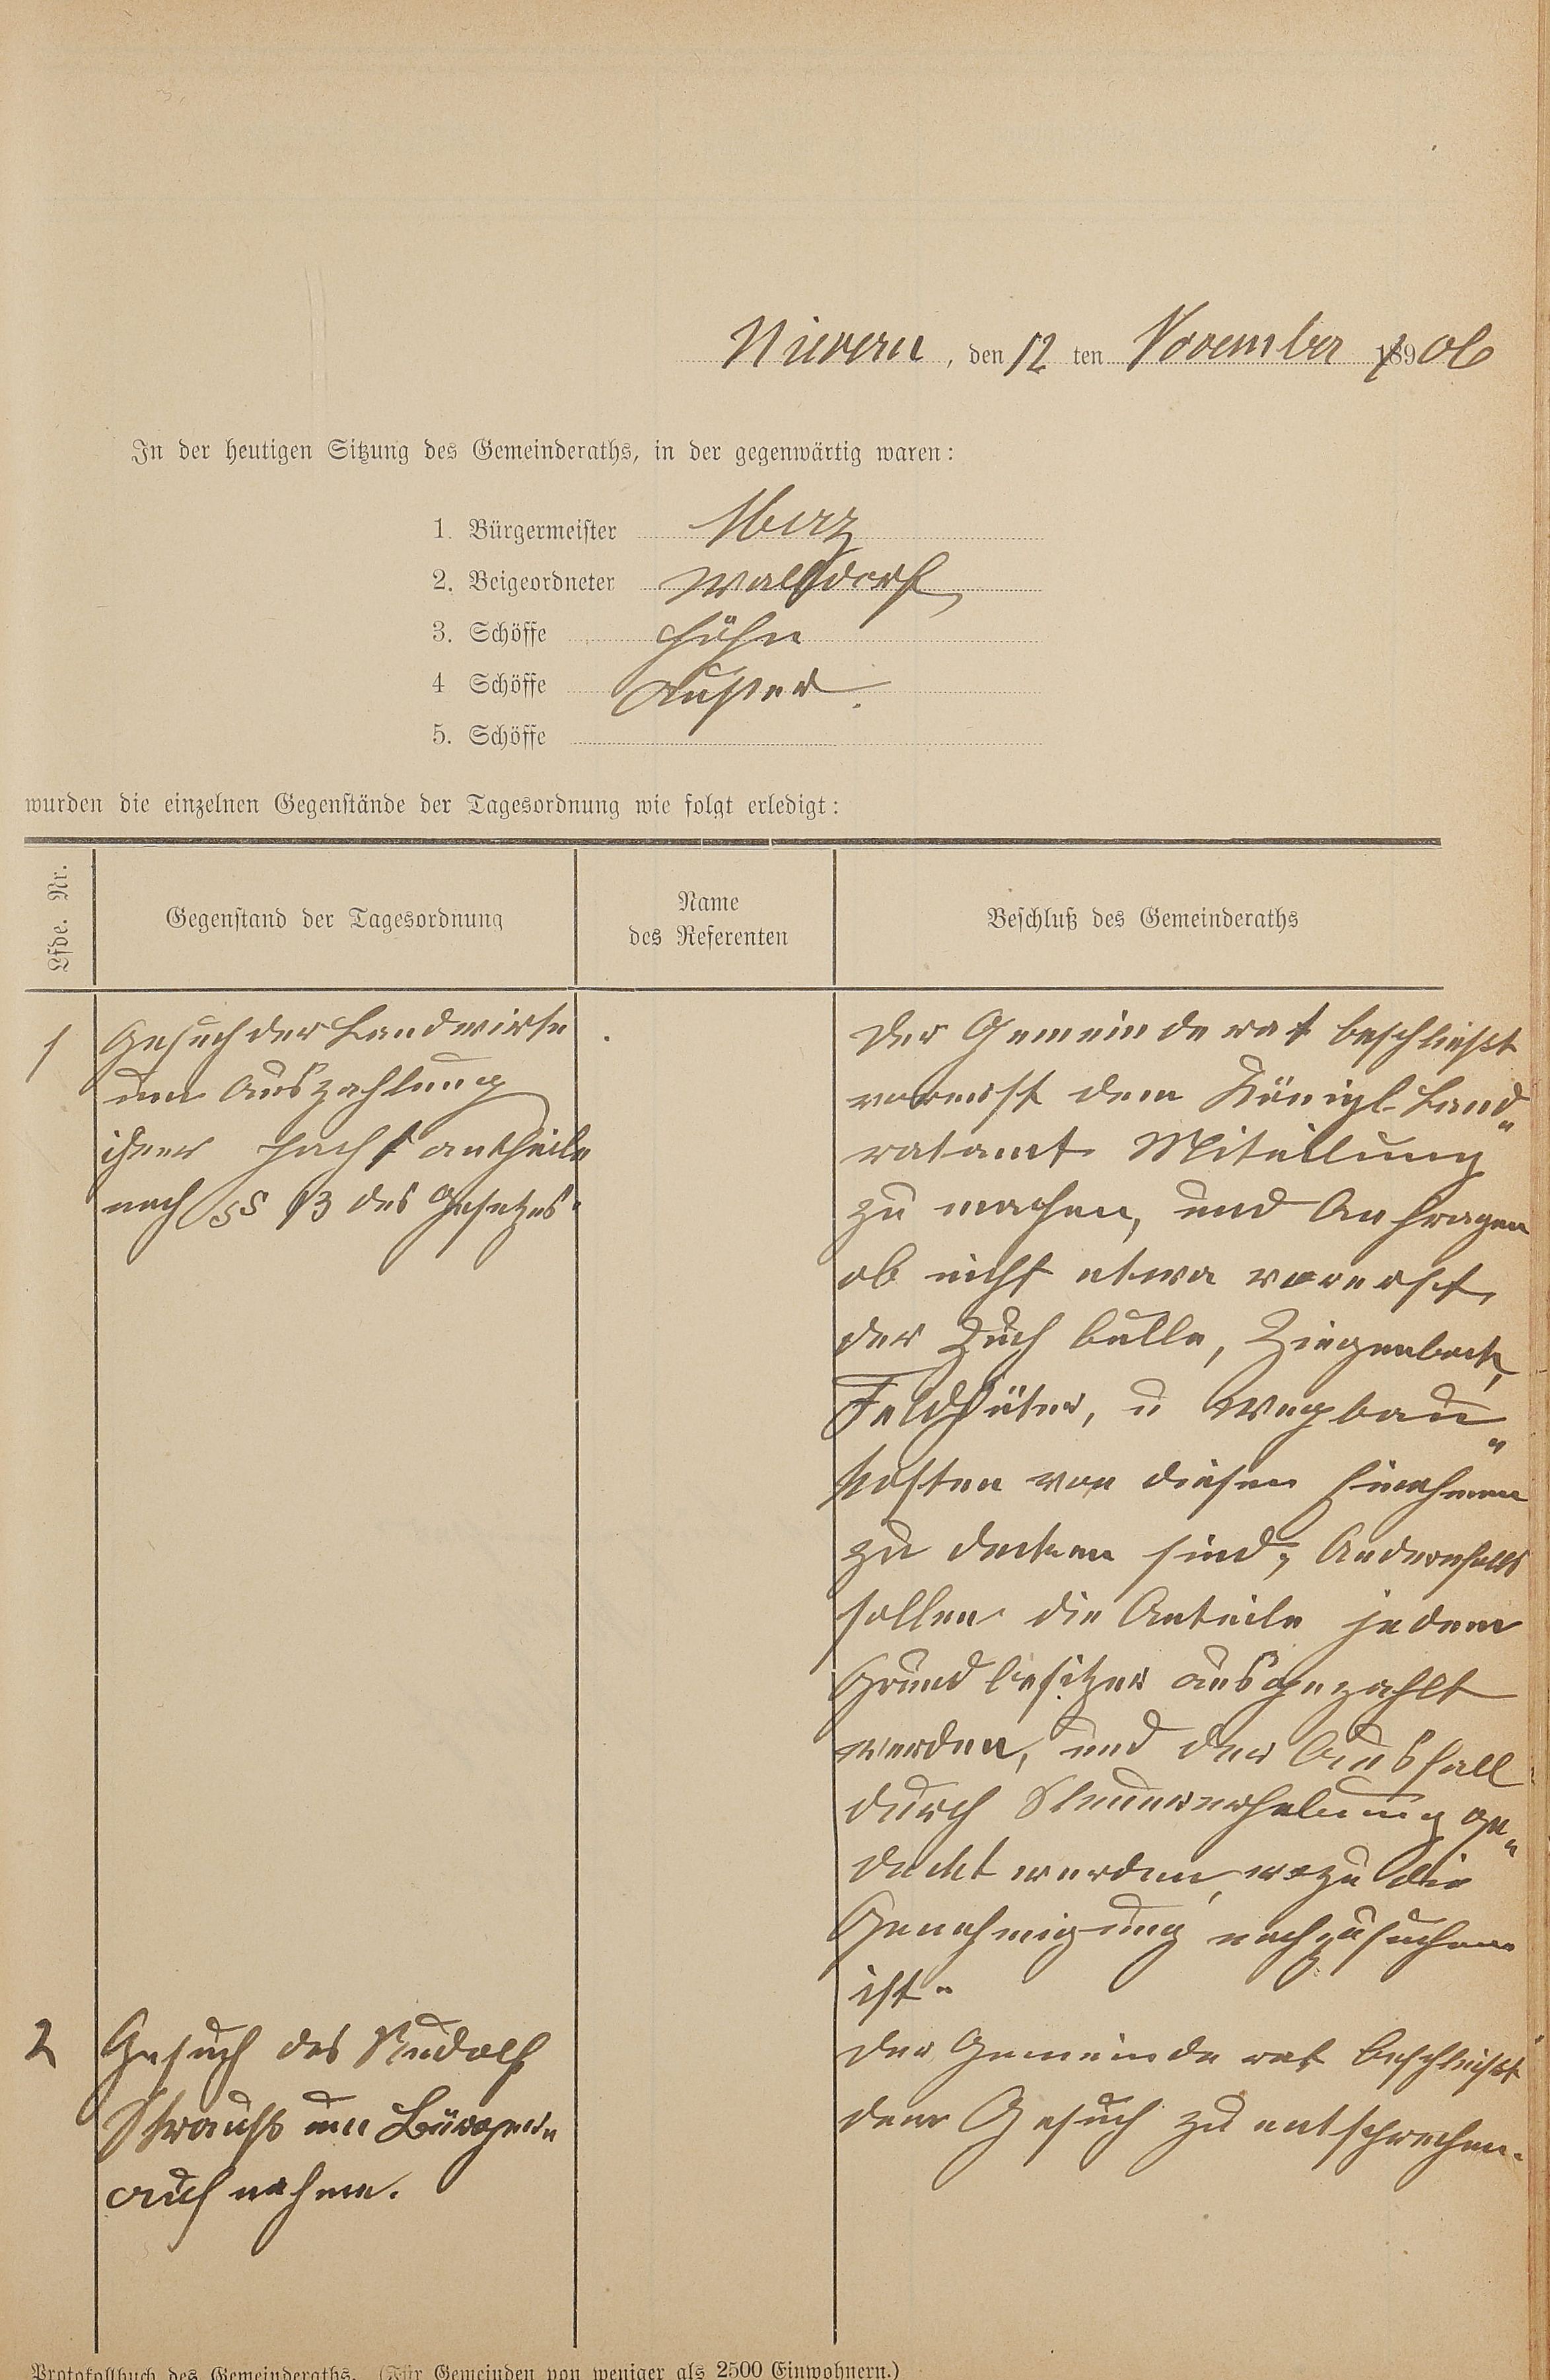 Nievern, den 12 ten November 1906
In der heutigen Sitzung des Gemeinderaths, in der gegenwärtig waren:
1. Bürgermeister Merz
2. Beigeordneter Walsdorf,
3. Schöffe Höhn
4 Schöffe
5. Schöffe
wurden die einzelnen Gegenstände der Tagesordnung wie folgt erledigt:
Lfde. Nr.
Gegenstand der Tagesordnung
Name
des Referenten
Beschluß des Gemeinderaths
1
Gesuch der Landwirte
um Auszahlung
ihrer Jachtantheile
nach §§ 13 des Gesetzes.
Der Gemeinderat beschließt
vorerst dem Königl. Land„
ratamt Miteilung
zu machen, und Anfragen
ob nicht etwa vorerst,
der Zuchbulle, Ziegenbock,
Feldhüter, u Wegbau„
kosten von diesen
zu decken sind, Andernfalls
sollen die Anteile jedem
Grundbesitzer ausgezahlt
werden, und der Ausfall
durch Steuererhebung ge„
deckt werden, wozu die
Genehmigung nachzusuchen
ist.
2
Gesuch des Rudolf
Strauß um Bürger„
aufnahme.
Der Gemeinderat beschließt
dem Gesuch zu entsprechen.
Protokollbuch des Gemeinderaths. (Für Gemeinden von weniger als 2500 Einwohnern.)